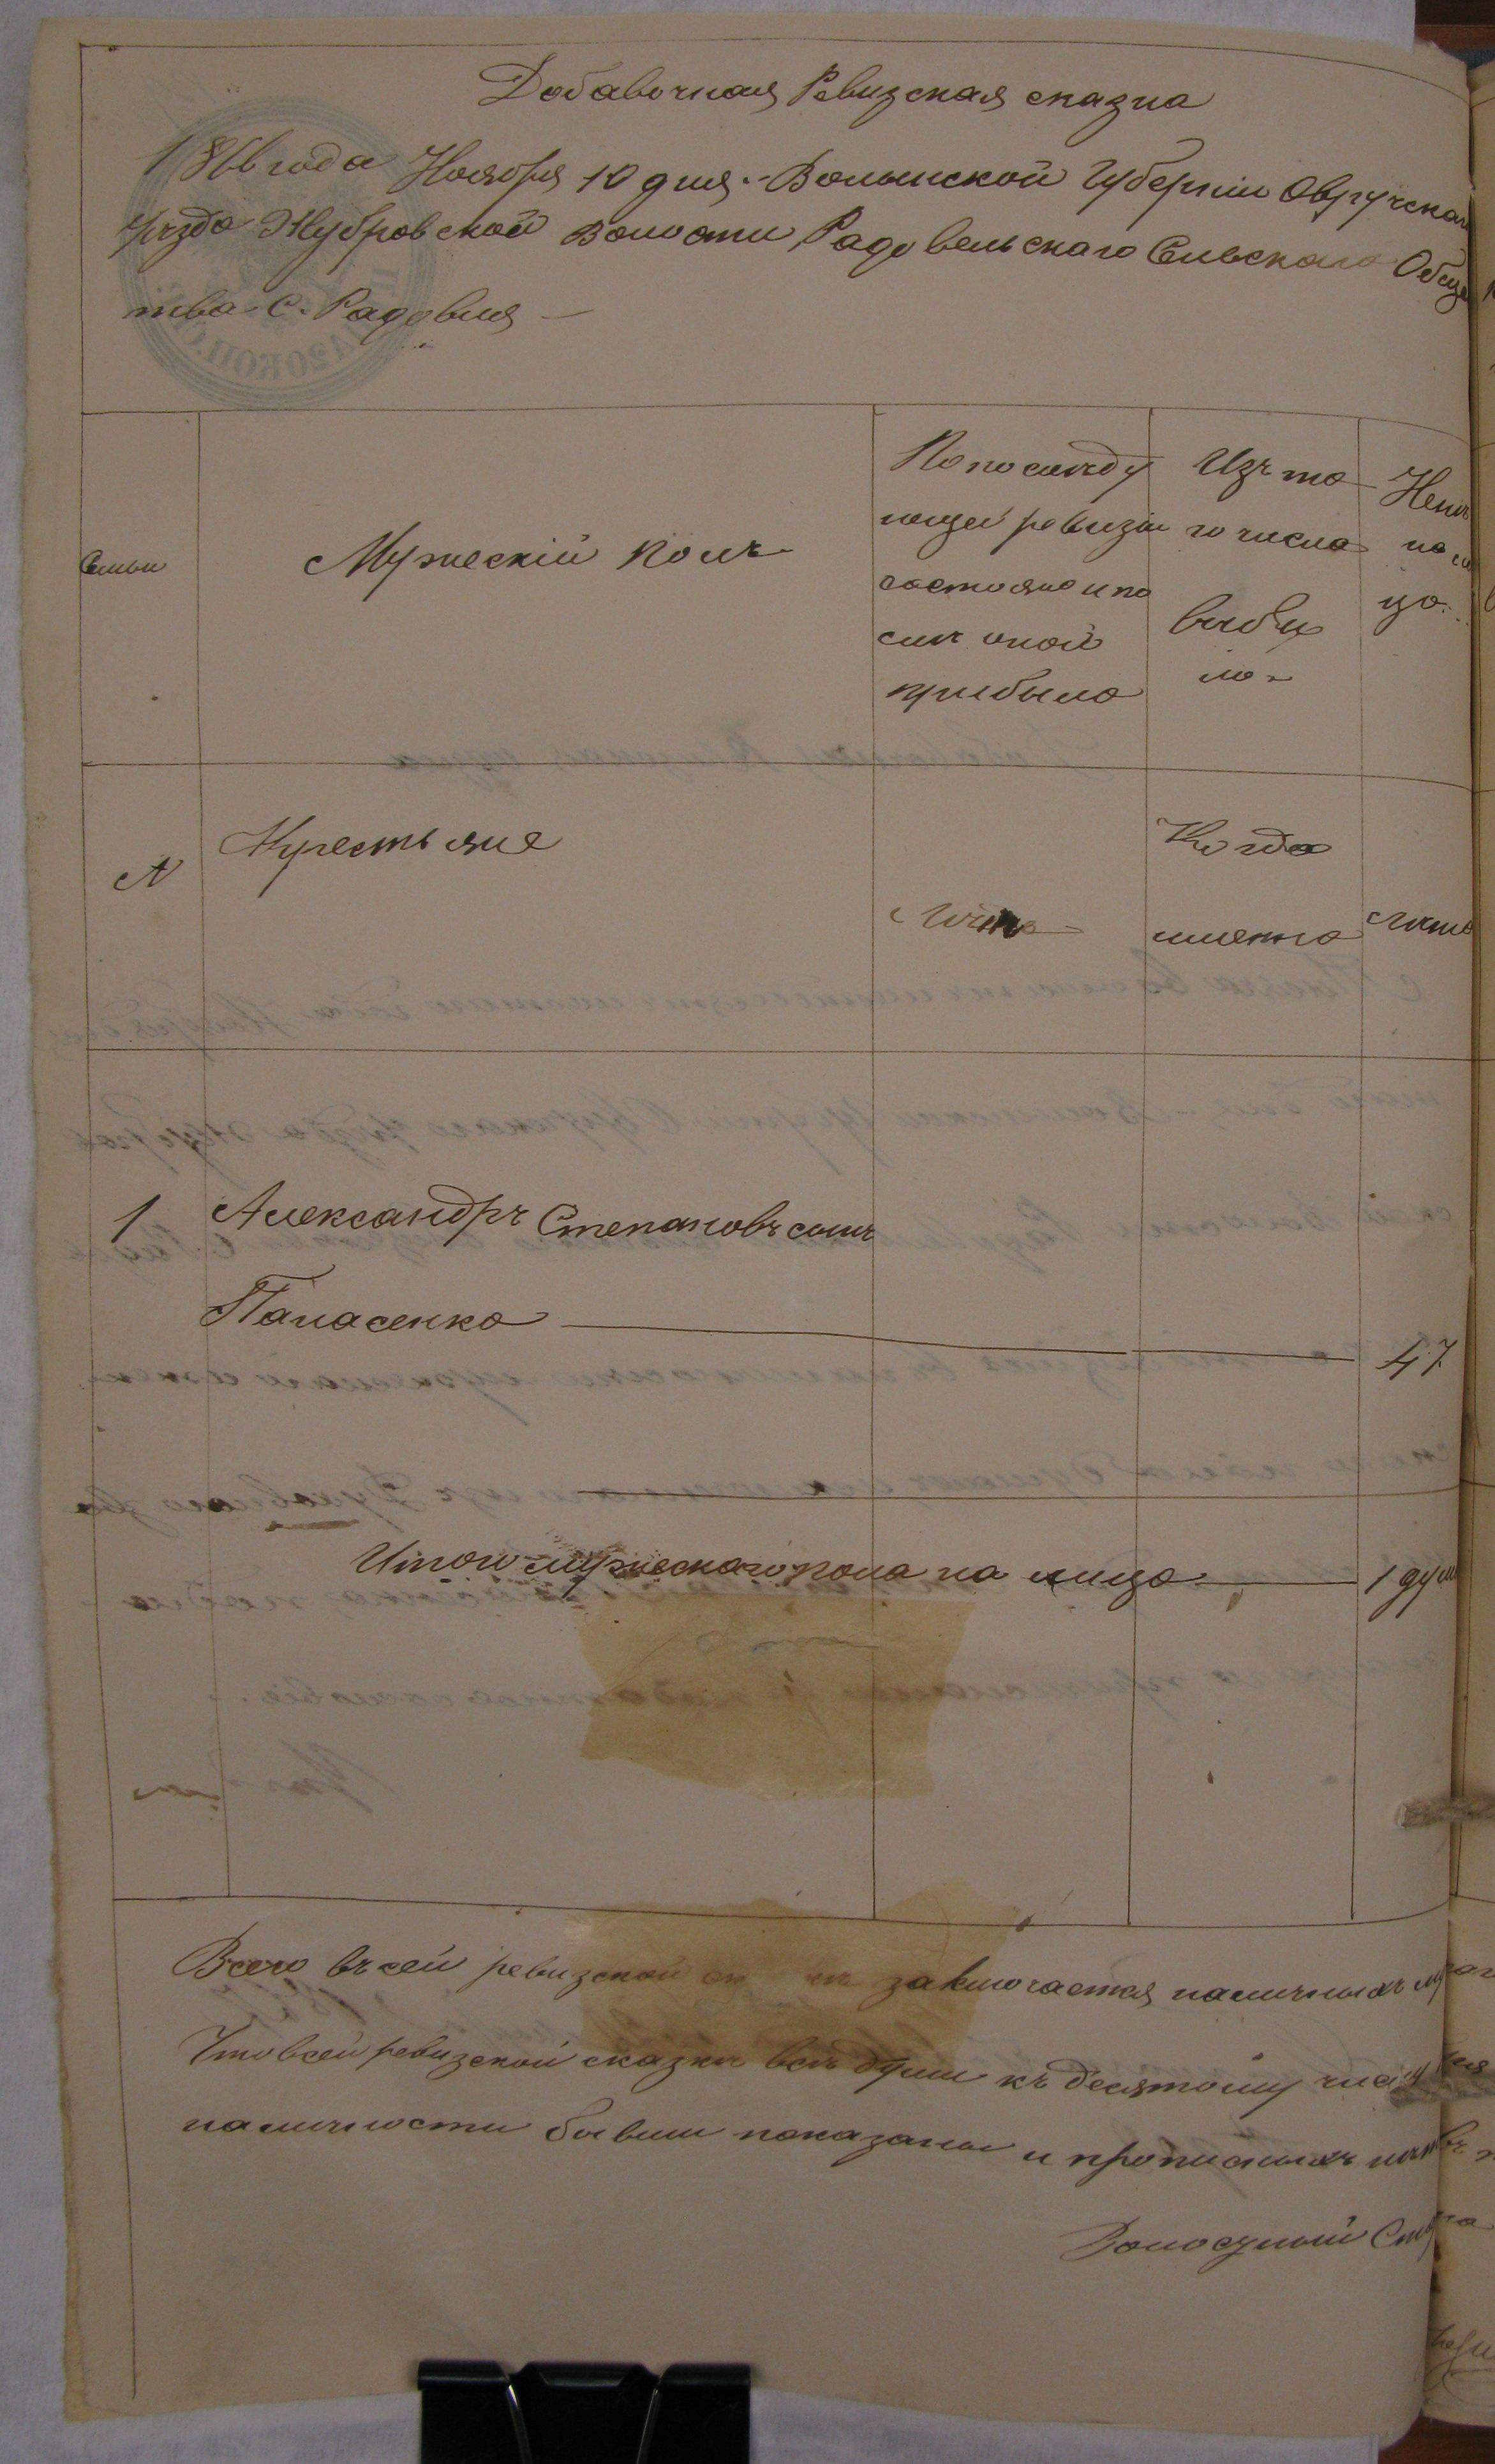 Добавочная Ревизская сказка
1866 года Ноября 10 дня. Волынской Губерніи Овручскаго
уѣзда Жубровской волости Радовельскаго Сельскаго Общес
тва С. Радовля
Семьи
Мужескій полъ
По послѣду
ющей ревизіи
состояло и по
слѣ оной
прибыло
Изъ то
го числа
выбы
ло
Ныне
на ли
цо
№
Крестьяне
Лѣта
Когда
именно
Лѣта
1
Александръ Степановъ сынъ
Панасенко
47
Итого мужескаго пола на лицо
1 душ
Всего въ сей ревизской заключается наличныхъ
Что въ сей ревизской сказкѣ всѣ души къ десятому числу
наличности бывши показаны и прописныхъ нѣтъ
Волостный